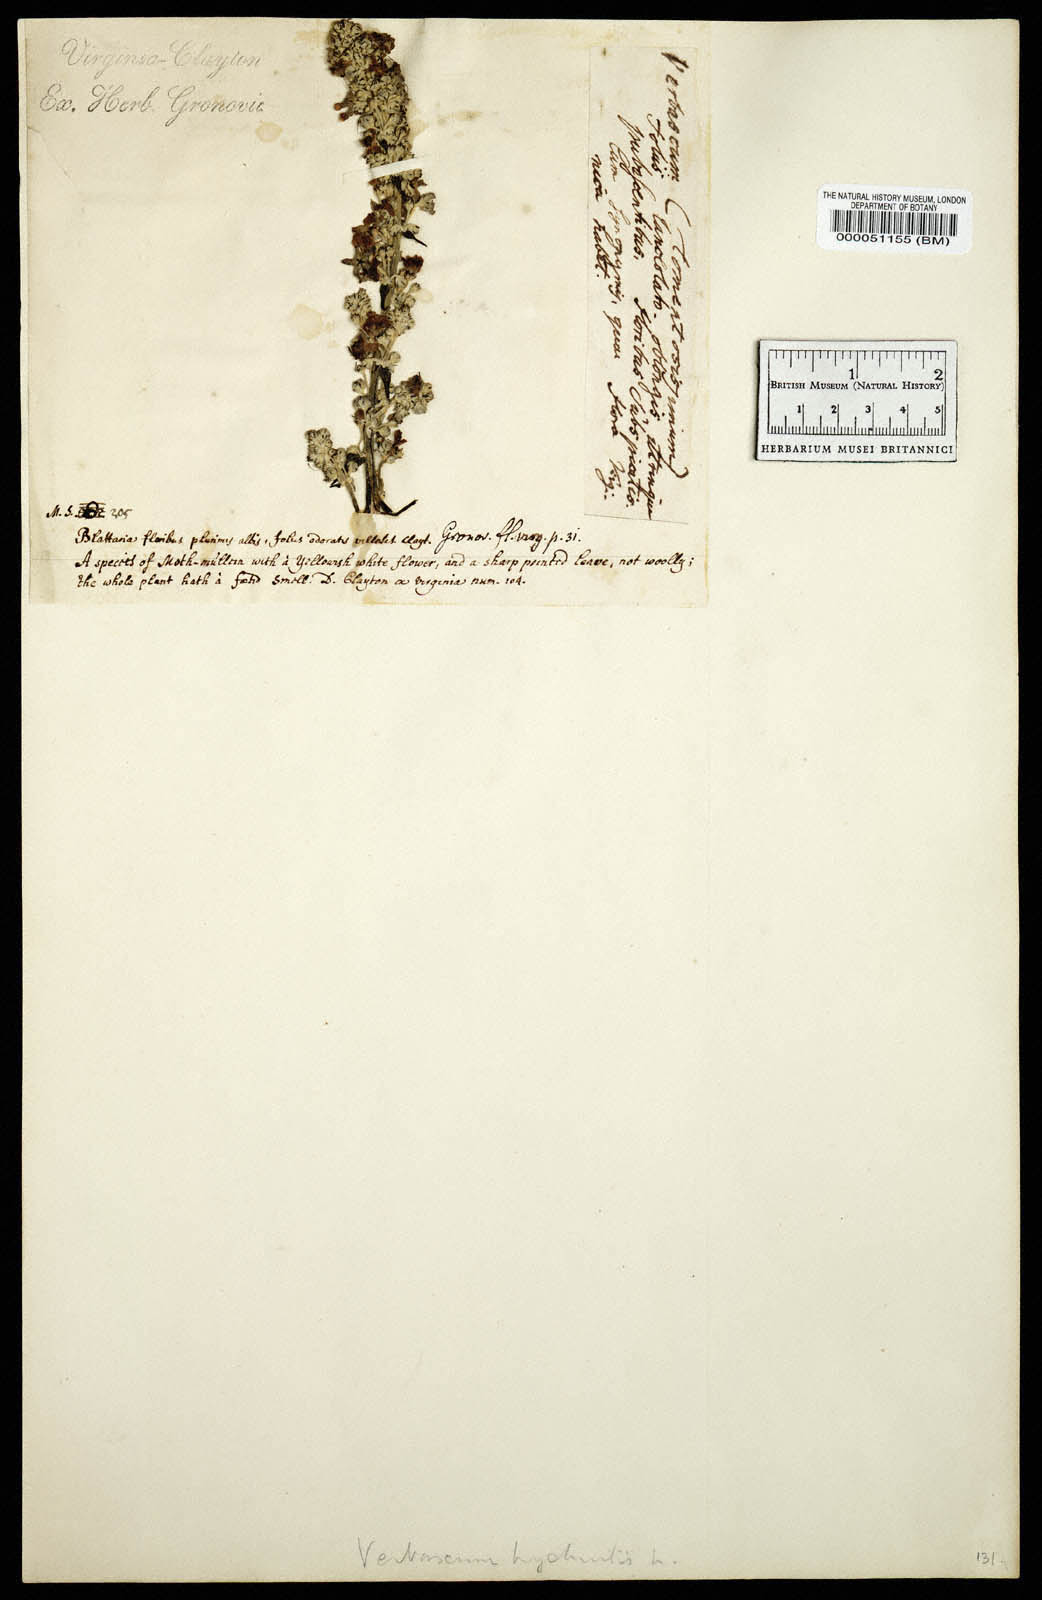 Virginia - Clayton
Ex. Herb. Gronovii
Verbascum (tomentosissimum)
foliis lanceolato-oblongis utrinque
pubescentibus. floribus subspicatis.
Cum Synonymis, quae Flora Virgi-
nica habet.
THE NATURAL HISTORY MUSEUM, LONDON
DEPARTMENT OF BOTANY
000051155 (BM)
1 2
BRITISH MUSEUM (NATURAL HISTORY)
1 2 3 4 5
HERBARIUM MUSEI BRITANNICI
M. S. 205
Blattaria floribus plurimis albis, foliis odoratis villosis Clayt. Gronov. fl. virg. p. 31.
A species of Moth-mullein with à Yellowish white flower, and a sharp pointed leave, not woolly;
the whole plant hath à fœtid smell. D. Clayton ex Virginia num. 104.
Verbascum lychnitis L.
131.